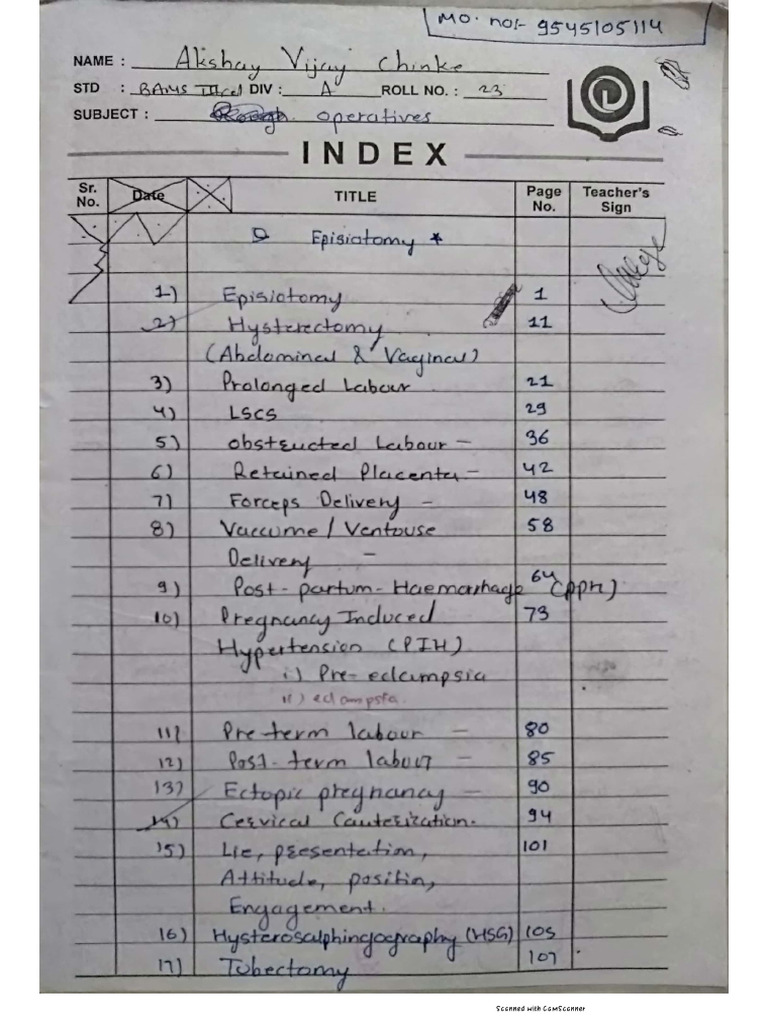 Mo. no:- 9545105114
NAME : Akshay Vijay Chinke
STD : BAMS DIV : A ROLL NO. : 23
SUBJECT : operatives
INDEX
Sr. No. Date TITLE Page No. Teacher's Sign
Episiotomy *
1) Episiotomy 1
2) Hysterectomy 11
(Abdominal & Vaginal)
3) Prolonged Labour 21
4) LSCS 29
5) obstructed Labour - 36
6) Retained Placenta - 42
7) Forceps Delivery - 48
8) Vaccume / Ventouse 58
Delivery -
9) Post-partum-Haemorrhage (PPH) 64
10) Pregnancy Induced 73
Hypertension (PIH)
i) Pre-eclampsia
ii) eclampsia
11) Pre-term labour - 80
12) Post-term labour - 85
13) Ectopic pregnancy - 90
14) Cervical Cauterization. 94
15) Lie, presentation, 101
Attitude, positin,
Engagement.
16) Hysterosalphingography (HSG) 105
17) Tubectomy 107
Scanned with CamScanner